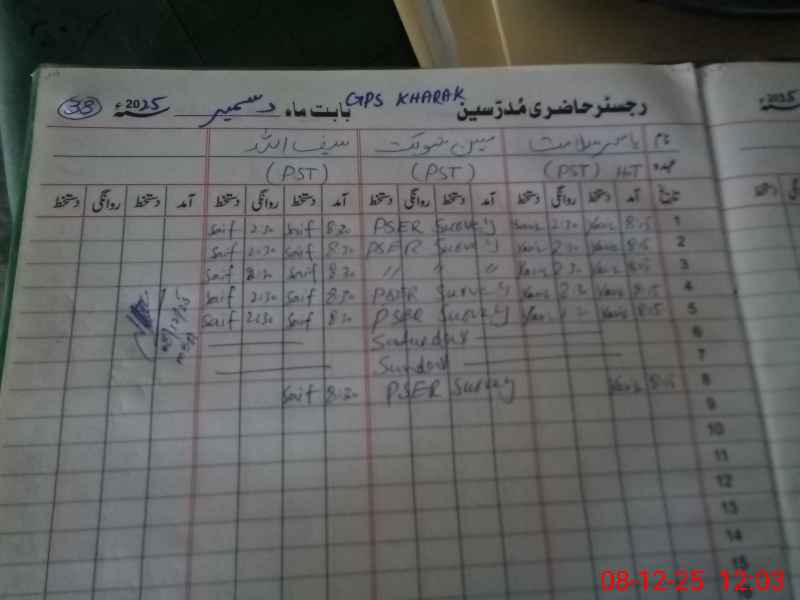 رجسٹر حاضری مُدرّسین GPS KHARAK بابت ماہ دسمبر سنہ 2025ء 38
نام یاسر سلامت مبین شوکت سیف اللہ
عہدہ HT (PST) (PST) (PST)
تاریخ آمد دستخط روانگی دستخط آمد دستخط روانگی دستخط آمد دستخط روانگی دستخط آمد دستخط روانگی دستخط
1 8:15 Yasir 2:30 Yasir PSER Survey 8:30 Saif 2:30 Saif
2 8:15 Yasir 2:30 Yasir PSER Survey 8:30 Saif 2:30 Saif
3 8:15 Yasir 2:30 Yasir " " " 8:30 Saif 2:30 Saif
4 8:15 Yasir 2:30 Yasir PSER Survey 8:30 Saif 2:30 Saif
5 8:15 Yasir 2:30 Yasir PSER Survey 8:30 Saif 2:30 Saif
6 Saturday
7 Sunday
8 8:15 Yasir PSER Survey 8:30 Saif
9
10
11
12
13
14
15
08-12-25 12:03